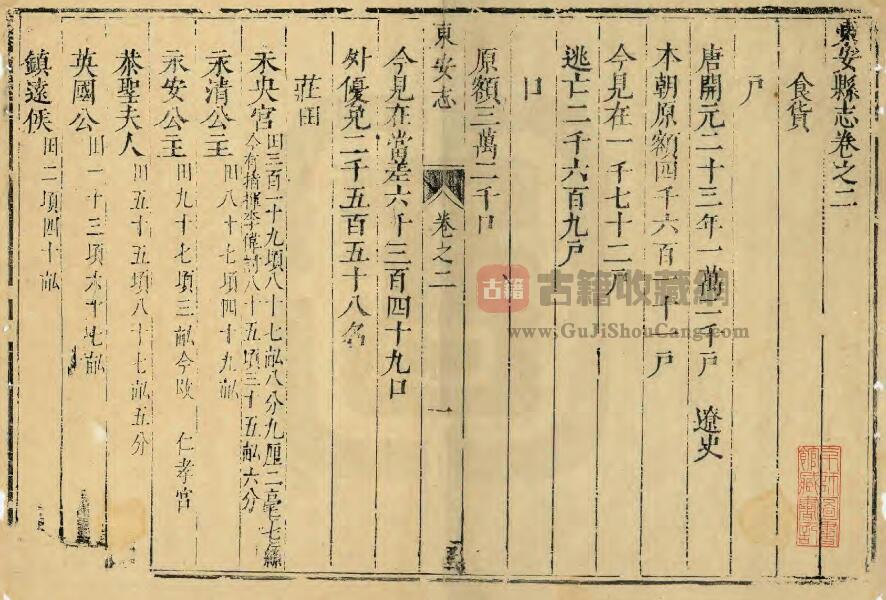 東安縣志卷之二
食貨
戶
唐開元二十三年一萬二千戶 遼史
本朝原額四千六百二十一戶
今見在一千七十二戶
逃亡二千六百九戶
口
原額三萬二千口
東安志 卷之二 一
今見在當差六千三百四十九口
外優免二千五百五十八名
莊田
未央宮 田三百一十九頃八十七畝八分九厘二毫七絲
今有指揮李偉討八十五頃三十五畝六分
永清公主 田八十七頃四十九畝
永安公主 田九十七頃三畝今改 仁孝宮
恭聖夫人 田五十五頃八十七畝五分
英國公 田一十三頃六十七畝
鎮遠侯 田二頃四十畝
古籍 古籍收藏網
www.GuJiShouCang.com
京師圖書
館藏書記